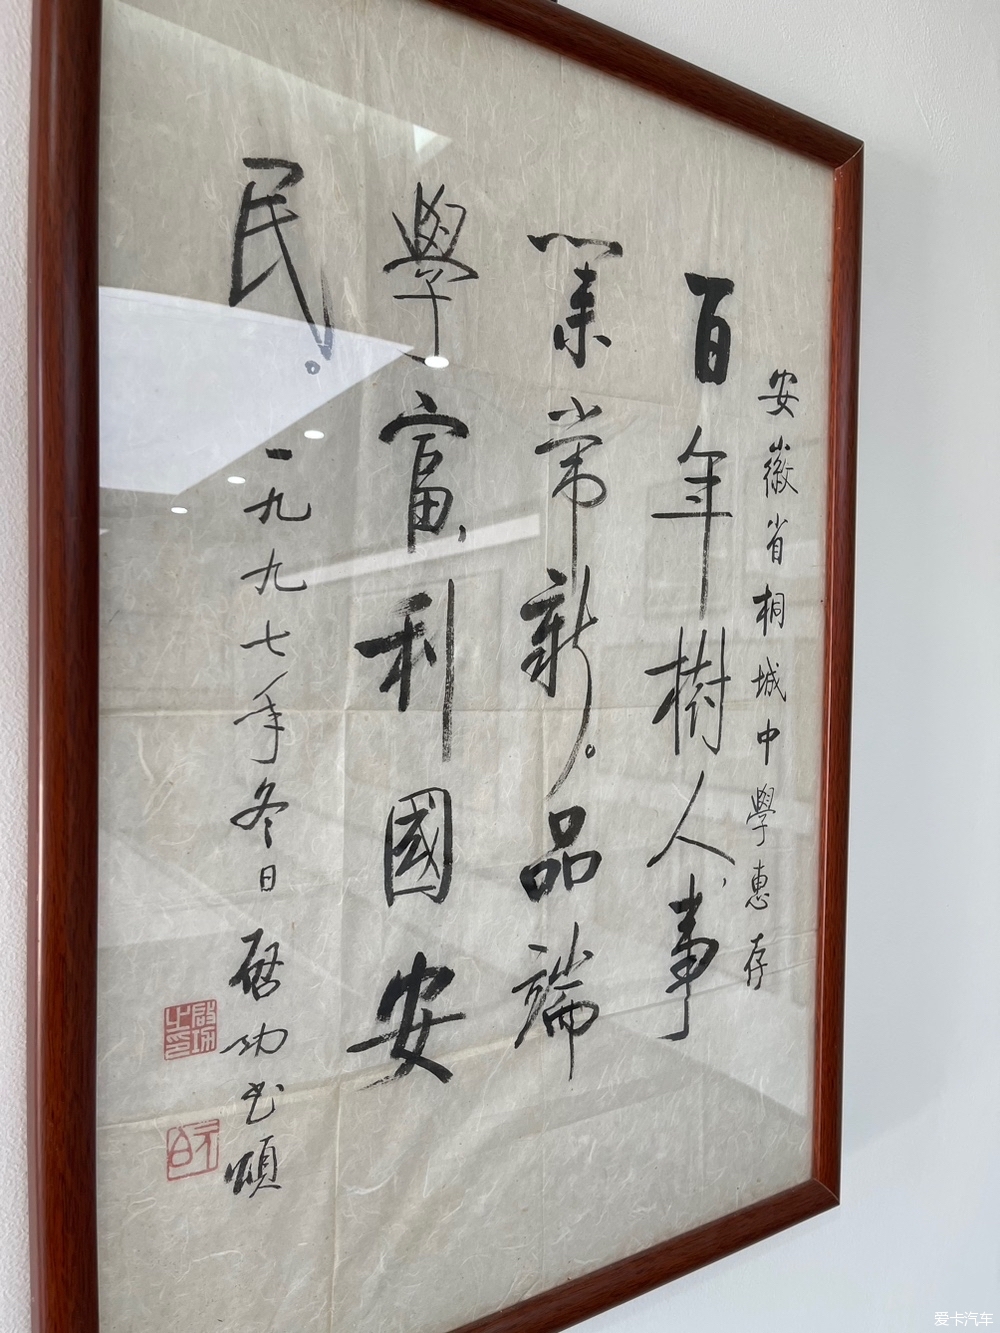 安徽省桐城中學惠存
百年樹人事
業常新。品端
學富，利國安
民。一九九七年冬日
啟功書頌
啟功之印
元白
爱卡汽车